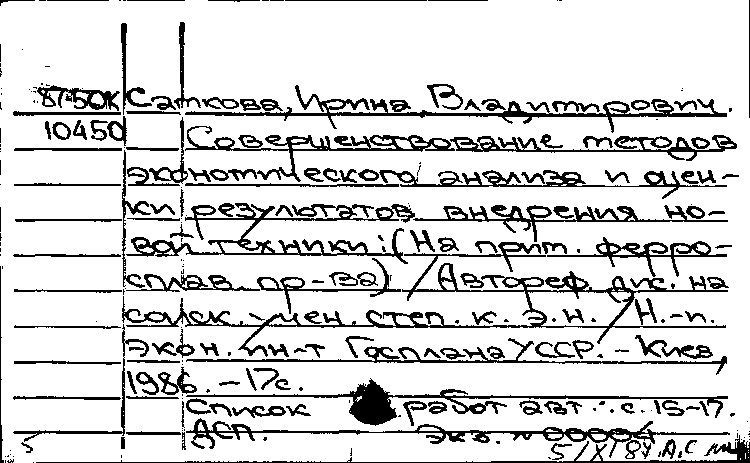 87-50К Саткова, Ирина Владимирович.
10450 Совершенствование методов
экономического анализа и оцен-
ки результатов внедрения но-
вой техники: (На прим. ферро-
сплав. пр-ва) / Автореф. дис. на
соиск. учен. степ. к. э. н. / Н.-и.
экон. ин-т Госплана УССР. - Киев,
1986. - 17с.
Список работ авт.: с. 15-17.
ДСП. Экз. № 00004
5 5/XI 87. А.С